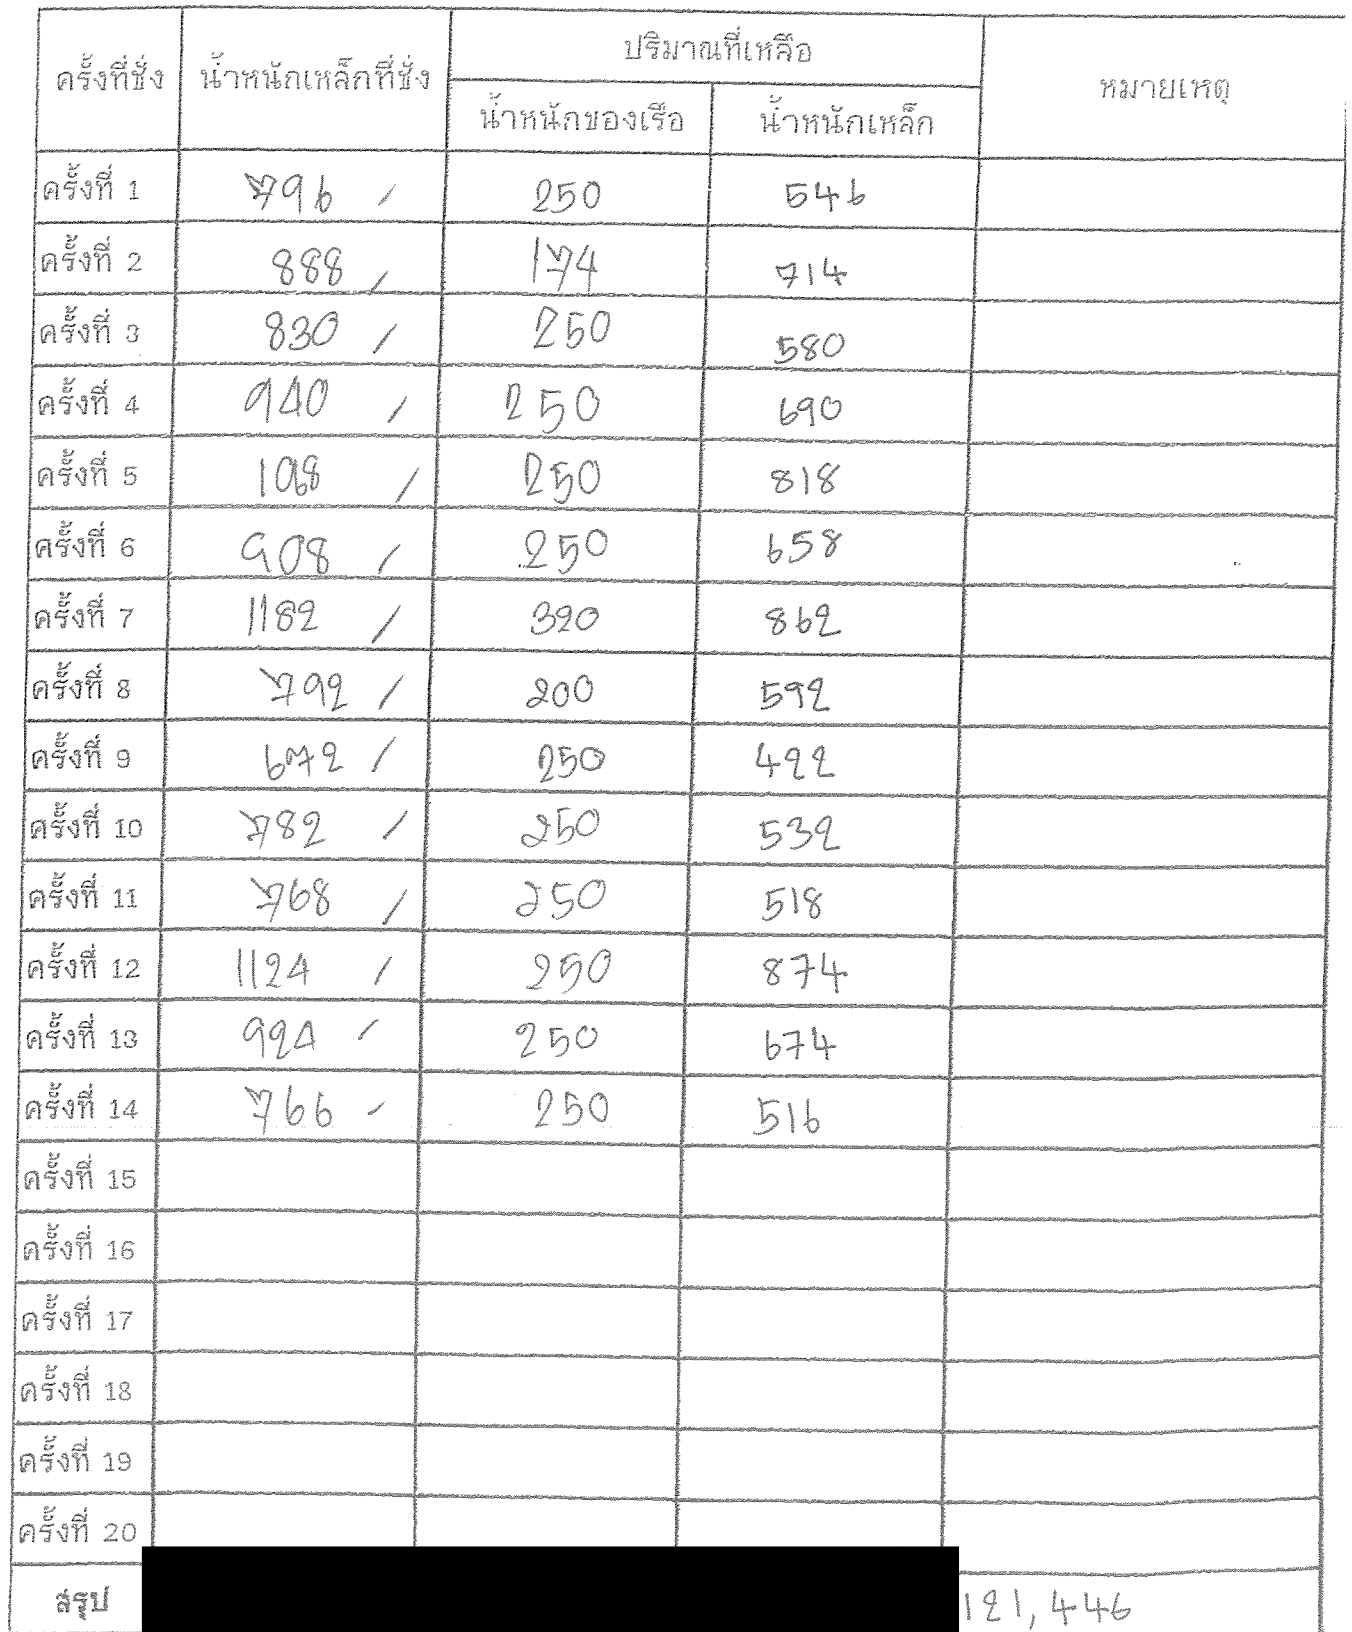 ครั้งที่ชั่ง น้ำหนักเหล็กที่ชั่ง ปริมาณที่เหลือ หมายเหตุ
น้ำหนักของเรือ น้ำหนักเหล็ก
ครั้งที่ 1 796 / 250 546
ครั้งที่ 2 888 / 174 714
ครั้งที่ 3 830 / 250 580
ครั้งที่ 4 940 / 250 690
ครั้งที่ 5 1068 / 250 818
ครั้งที่ 6 908 / 250 658
ครั้งที่ 7 1182 / 320 862
ครั้งที่ 8 792 / 200 592
ครั้งที่ 9 672 / 250 422
ครั้งที่ 10 782 / 250 532
ครั้งที่ 11 768 / 250 518
ครั้งที่ 12 1124 / 250 874
ครั้งที่ 13 924 / 250 674
ครั้งที่ 14 766 / 250 516
ครั้งที่ 15
ครั้งที่ 16
ครั้งที่ 17
ครั้งที่ 18
ครั้งที่ 19
ครั้งที่ 20
สรุป 121,446